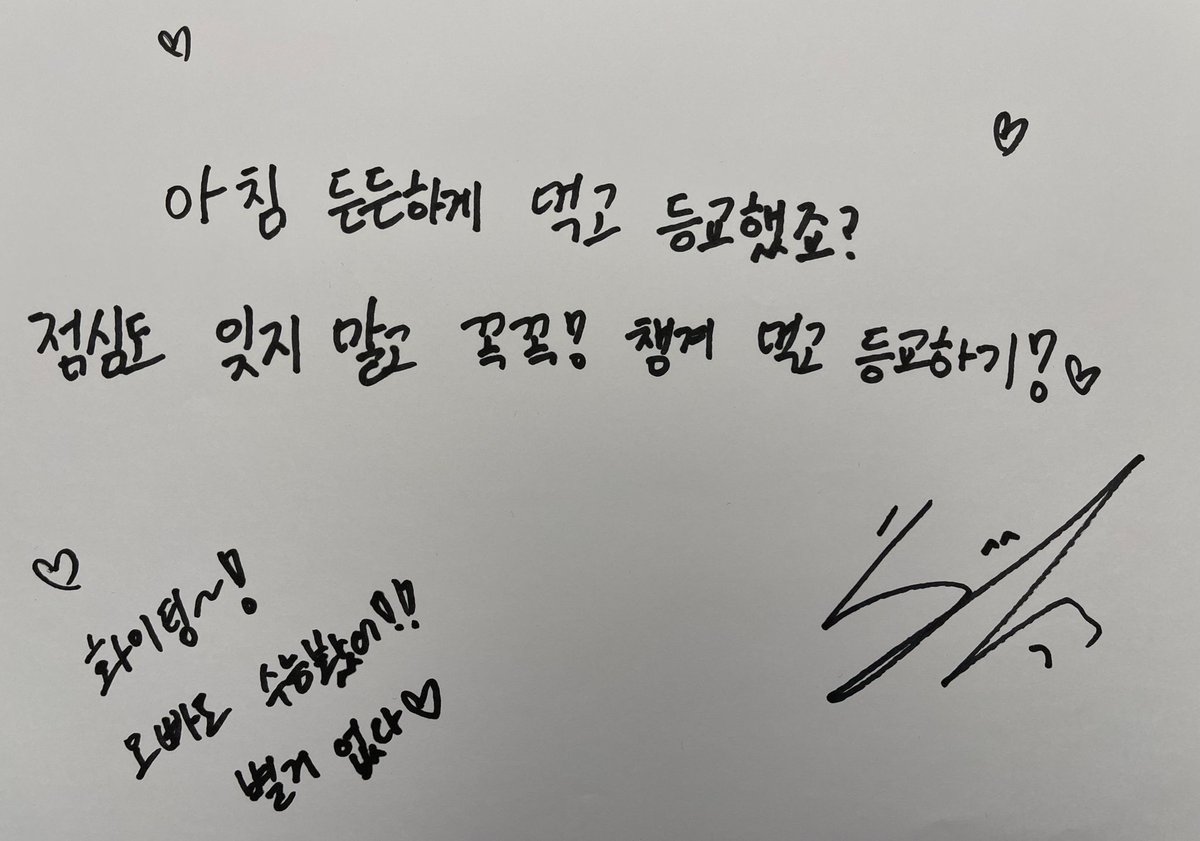 아침 든든하게 먹고 등교했죠?
점심도 잊지 말고 꼭꼭! 챙겨 먹고 등교하기!♡
화이팅~!
오빠도 수능봤어!!
별거 없다♡